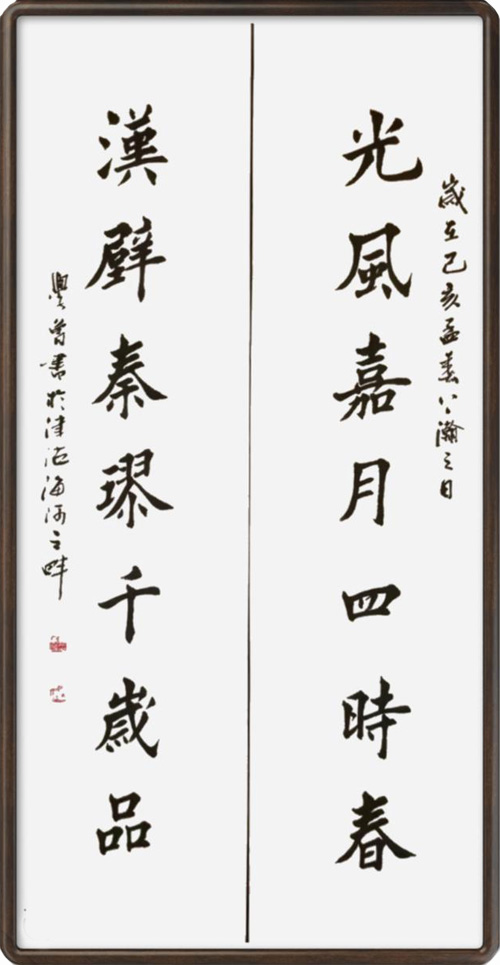 歲在己亥孟春上瀚之日
光風嘉月四時春
漢甓秦璆千歲品
曾書於津沽海河之畔